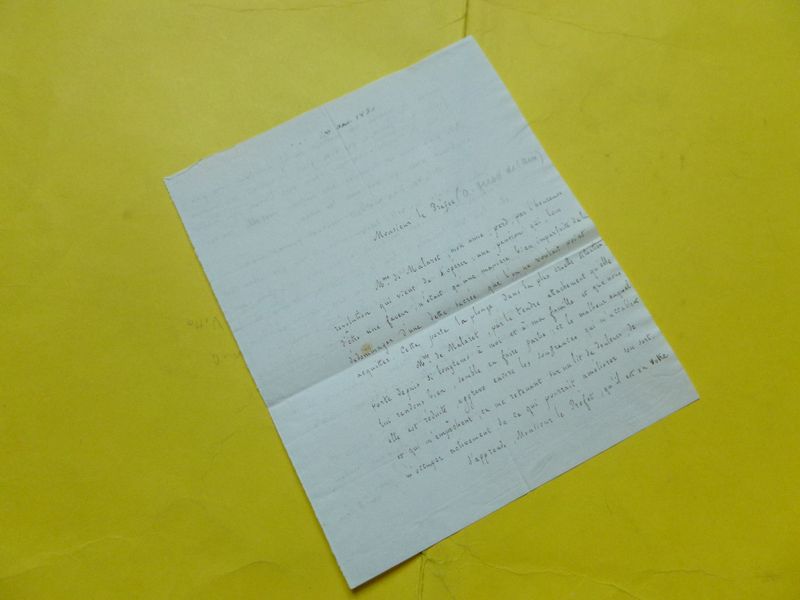 1830
Monsieur le Préfet
Mme de Malaret, mon amie, perd, par l'heureuse
révolution qui vient de s'opérer, une pension qui, loin
d'être une faveur, n'était qu'une manière bien imparfaite de la
dédommager d'une dette sacrée que l'on ne voulait point
acquitter. Cette perte la plonge dans la plus cruelle situation
Mme de Malaret, par le tendre attachement qu'elle
porte depuis si longtems à moi et à ma famille et que nous
lui rendons bien, semble en faire partie, et le malheur auquel
elle est réduite aggrave encore les souffrances qui m'accablent
et qui m'empêchent, en me retenant sur un lit de douleur, de
m'occuper activement de ce qui pourrait améliorer son sort.
J'apprends, Monsieur le Préfet, qu'il est en votre